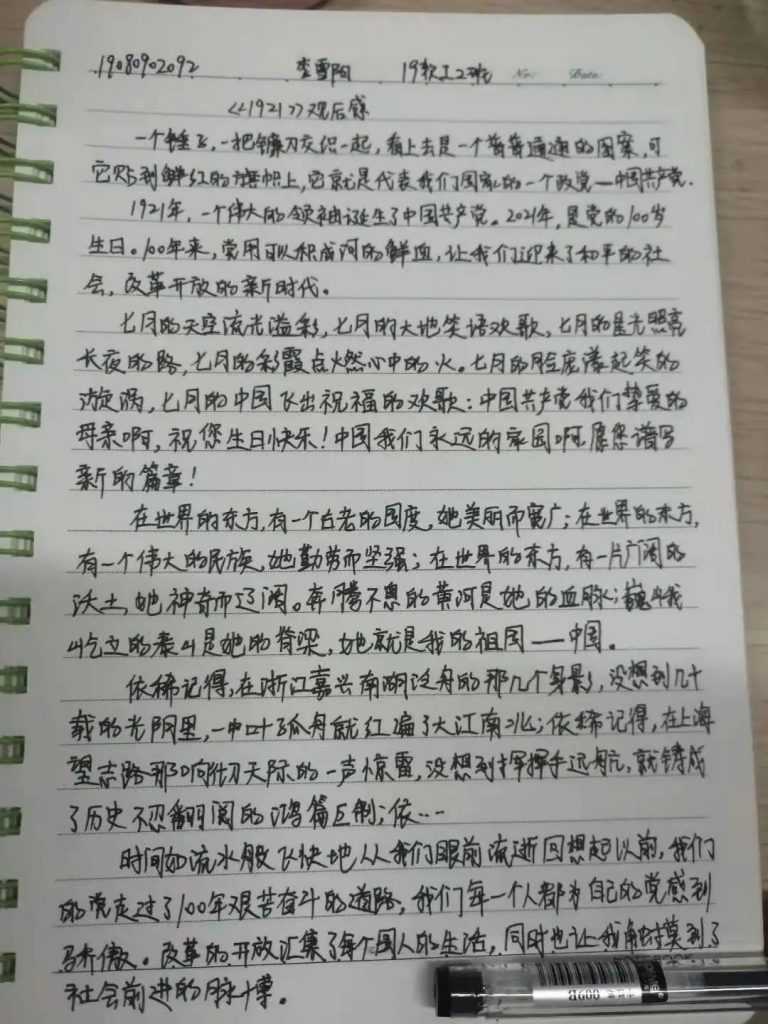 19080902092 李雪阳 19软工2班 No: Date:
<<1921>>观后感
一个锤子,一把镰刀交织一起,看上去是一个普普通通的图案,可
它贴到鲜红的旗帜上,它就是代表我们国家的一个政党—中国共产党.
1921年,一个伟大的领袖诞生了中国共产党。2021年,是党的100岁
生日。100年来,党用可以积成河的鲜血,让我们迎来了和平的社
会,改革开放的新时代。
七月的天空流光溢彩,七月的大地笑语欢歌,七月的星光照亮
长夜的路,七月的彩霞点燃心中的火。七月的脸庞荡起笑的
漩涡,七月的中国飞出祝福的欢歌:中国共产党我们挚爱的
母亲啊,祝您生日快乐!中国我们永远的家园啊,愿您谱写
新的篇章!
在世界的东方,有一个古老的国度,她美丽而宽广;在世界的东方,
有一个伟大的民族,她勤劳而坚强;在世界的东方,有一片广阔的
沃土,她神奇而辽阔。奔腾不息的黄河是她的血脉;巍峨
屹立的泰山是她的脊梁,她就是我的祖国——中国。
依稀记得,在浙江嘉兴南湖泛舟的那几个身影,没想到几十
载的光阴里,一叶孤舟就红遍了大江南北;依稀记得,在上海
望志路那响彻天际的一声惊雷,没想到挥挥手远航,就铸成
了历史不忍翻阅的鸿篇巨制;依…
时间如流水般飞快地从我们眼前流逝回想起以前,我们
的党走过了100年艰苦奋斗的道路,我们每一个人都为自己的党感到
骄傲。改革的开放汇集了每个国人的生活,同时也让我触摸到了
社会前进的脉搏。